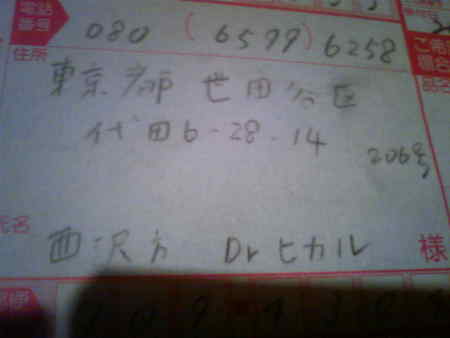 電話番号 080 (6599) 6258
住所
東京都 世田谷区
代田6-28-14
206号
氏名
西沢方 Drヒカル 様